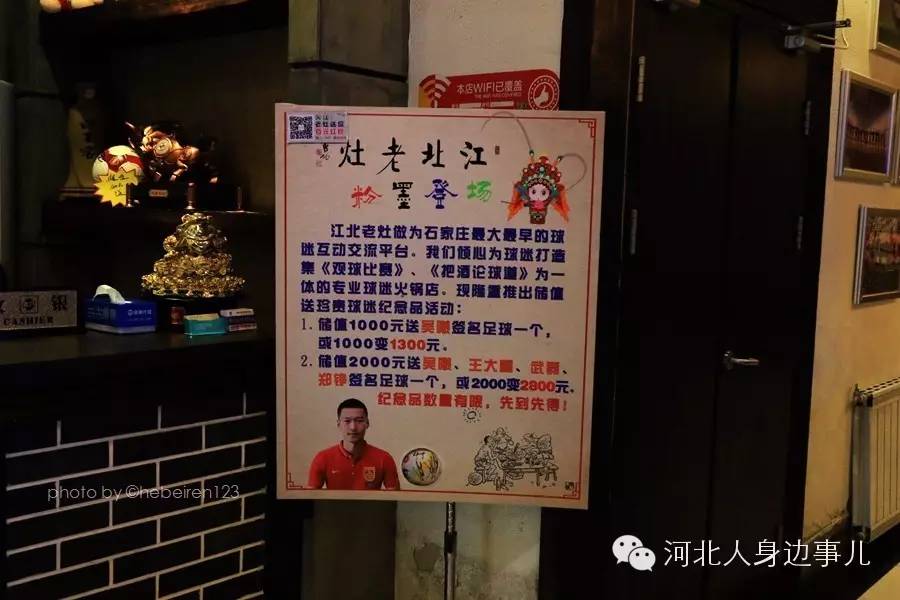 本店WIFI已覆盖
灶老北江
粉墨登场
江北老灶做为石家庄最大最早的球
迷互动交流平台。我们倾心为球迷打造
集《观球比赛》、《把酒论球道》为一
体的专业球迷火锅店。现隆重推出储值
送珍贵球迷纪念品活动：
1. 储值1000元送吴曦签名足球一个，
或1000变1300元。
2. 储值2000元送吴曦、王大雷、武磊、
郑铮签名足球一个，或2000变2800元。
纪念品数量有限，先到先得！
银
CASHIER
photo by ©hebeiren123
河北人身边事儿